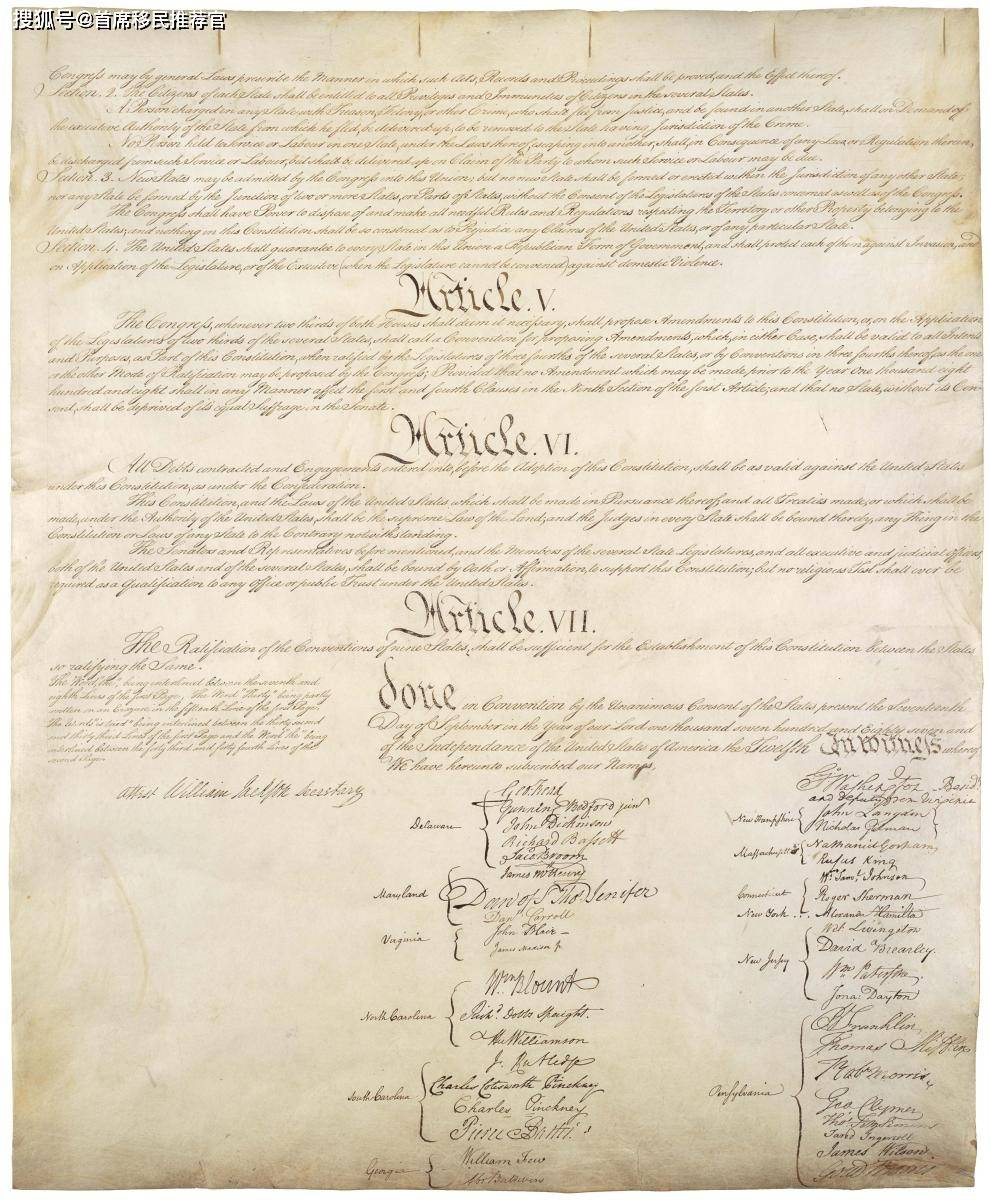 搜狐号@首席移民推荐官
Congress may by general Laws prescribe the Manner in which such Acts, Records and Proceedings shall be proved, and the Effect thereof.
Section. 2. The Citizens of each State shall be entitled to all Privileges and Immunities of Citizens in the several States.
A Person charged in any State with Treason, Felony, or other Crime, who shall flee from Justice, and be found in another State, shall on Demand of
the executive Authority of the State from which he fled, be delivered up, to be removed to the State having Jurisdiction of the Crime.
No Person held to Service or Labour in one State, under the Laws thereof, escaping into another, shall, in Consequence of any Law or Regulation therein,
be discharged from such Service or Labour, but shall be delivered up on Claim of the Party to whom such Service or Labour may be due.
Section. 3. New States may be admitted by the Congress into this Union; but no new State shall be formed or erected within the Jurisdiction of any other State;
nor any State be formed by the Junction of two or more States, or Parts of States, without the Consent of the Legislatures of the States concerned as well as of the Congress.
The Congress shall have Power to dispose of and make all needful Rules and Regulations respecting the Territory or other Property belonging to the
United States; and nothing in this Constitution shall be so construed as to Prejudice any Claims of the United States, or of any particular State.
Section. 4. The United States shall guarantee to every State in this Union a Republican Form of Government, and shall protect each of them against Invasion; and
on Application of the Legislature, or of the Executive (when the Legislature cannot be convened) against domestic Violence.
Article. V.
The Congress, whenever two thirds of both Houses shall deem it necessary, shall propose Amendments to this Constitution, or, on the Application
of the Legislatures of two thirds of the several States, shall call a Convention for proposing Amendments, which, in either Case, shall be valid to all Intents
and Purposes, as Part of this Constitution, when ratified by the Legislatures of three fourths of the several States, or by Conventions in three fourths thereof, as the one
or the other Mode of Ratification may be proposed by the Congress; Provided that no Amendment which may be made prior to the Year One thousand eight
hundred and eight shall in any Manner affect the first and fourth Clauses in the Ninth Section of the first Article; and that no State, without its Con-
sent, shall be deprived of its equal Suffrage in the Senate.
Article. VI.
All Debts contracted and Engagements entered into, before the Adoption of this Constitution, shall be as valid against the United States
under this Constitution, as under the Confederation.
This Constitution, and the Laws of the United States which shall be made in Pursuance thereof; and all Treaties made, or which shall be
made, under the Authority of the United States, shall be the supreme Law of the Land; and the Judges in every State shall be bound thereby, any Thing in the
Constitution or Laws of any State to the Contrary notwithstanding.
The Senators and Representatives before mentioned, and the Members of the several State Legislatures, and all executive and judicial Officers,
both of the United States and of the several States, shall be bound by Oath or Affirmation, to support this Constitution; but no religious Test shall ever be
required as a Qualification to any Office or public Trust under the United States.
Article. VII.
The Ratification of the Conventions of nine States, shall be sufficient for the Establishment of this Constitution between the States
so ratifying the Same.
The Word, "the," being interlined between the seventh and
eighth Lines of the first Page, The Word "Thirty" being partly
written on an Erazure in the fifteenth Line of the first Page,
The Words "is tried" being interlined between the thirty second
and thirty third Lines of the first Page and the Word "the" being
interlined between the forty third and forty fourth Lines of the
second Page.
done in Convention by the Unanimous Consent of the States present the Seventeenth
Day of September in the Year of our Lord one thousand seven hundred and Eighty seven and
of the Independance of the United States of America the Twelfth In Witness whereof
We have hereunto subscribed our Names,
Attest William Jackson Secretary
Delaware
Geo: Read
Gunning Bedford jun
John Dickinson
Richard Bassett
Jaco: Broom
Maryland
James McHenry
Dan of St Thos. Jenifer
Danl. Carroll
Virginia
John Blair—
James Madison Jr.
North Carolina
Wm. Blount
Richd. Dobbs Spaight.
Hu Williamson
South Carolina
J. Rutledge
Charles Cotesworth Pinckney
Charles Pinckney
Pierce Butler.
Georgia
William Few
Abr Baldwin
Go. Washington Presidt.
and deputy from Virginia
New Hampshire
John Langdon
Nicholas Gilman
Massachusetts
Nathaniel Gorham
Rufus King
Connecticut
Wm. Saml. Johnson
Roger Sherman
New York . . . Alexander Hamilton
New Jersey
Wil: Livingston
David Brearley.
Wm. Paterson.
Jona: Dayton
Pensylvania
B Franklin
Thomas Mifflin
Robt Morris
Geo. Clymer
Thos. FitzSimons
Jared Ingersoll
James Wilson.
Gouv Morris